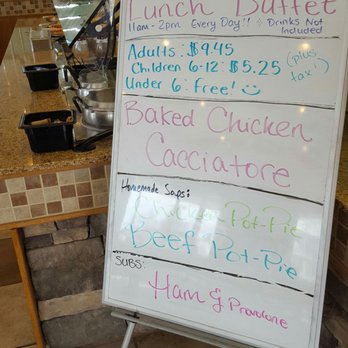 Lunch Buffet
11am - 2pm Every Day!! + Drinks Not
Included
Adults: $9.45
Children 6-12: $5.25
(plus
tax!)
Under 6: Free!
Baked Chicken
Cacciatore
Homemade Soups:
Chicken Pot-Pie
Beef Pot-Pie
SUBS:
Ham & Provolone